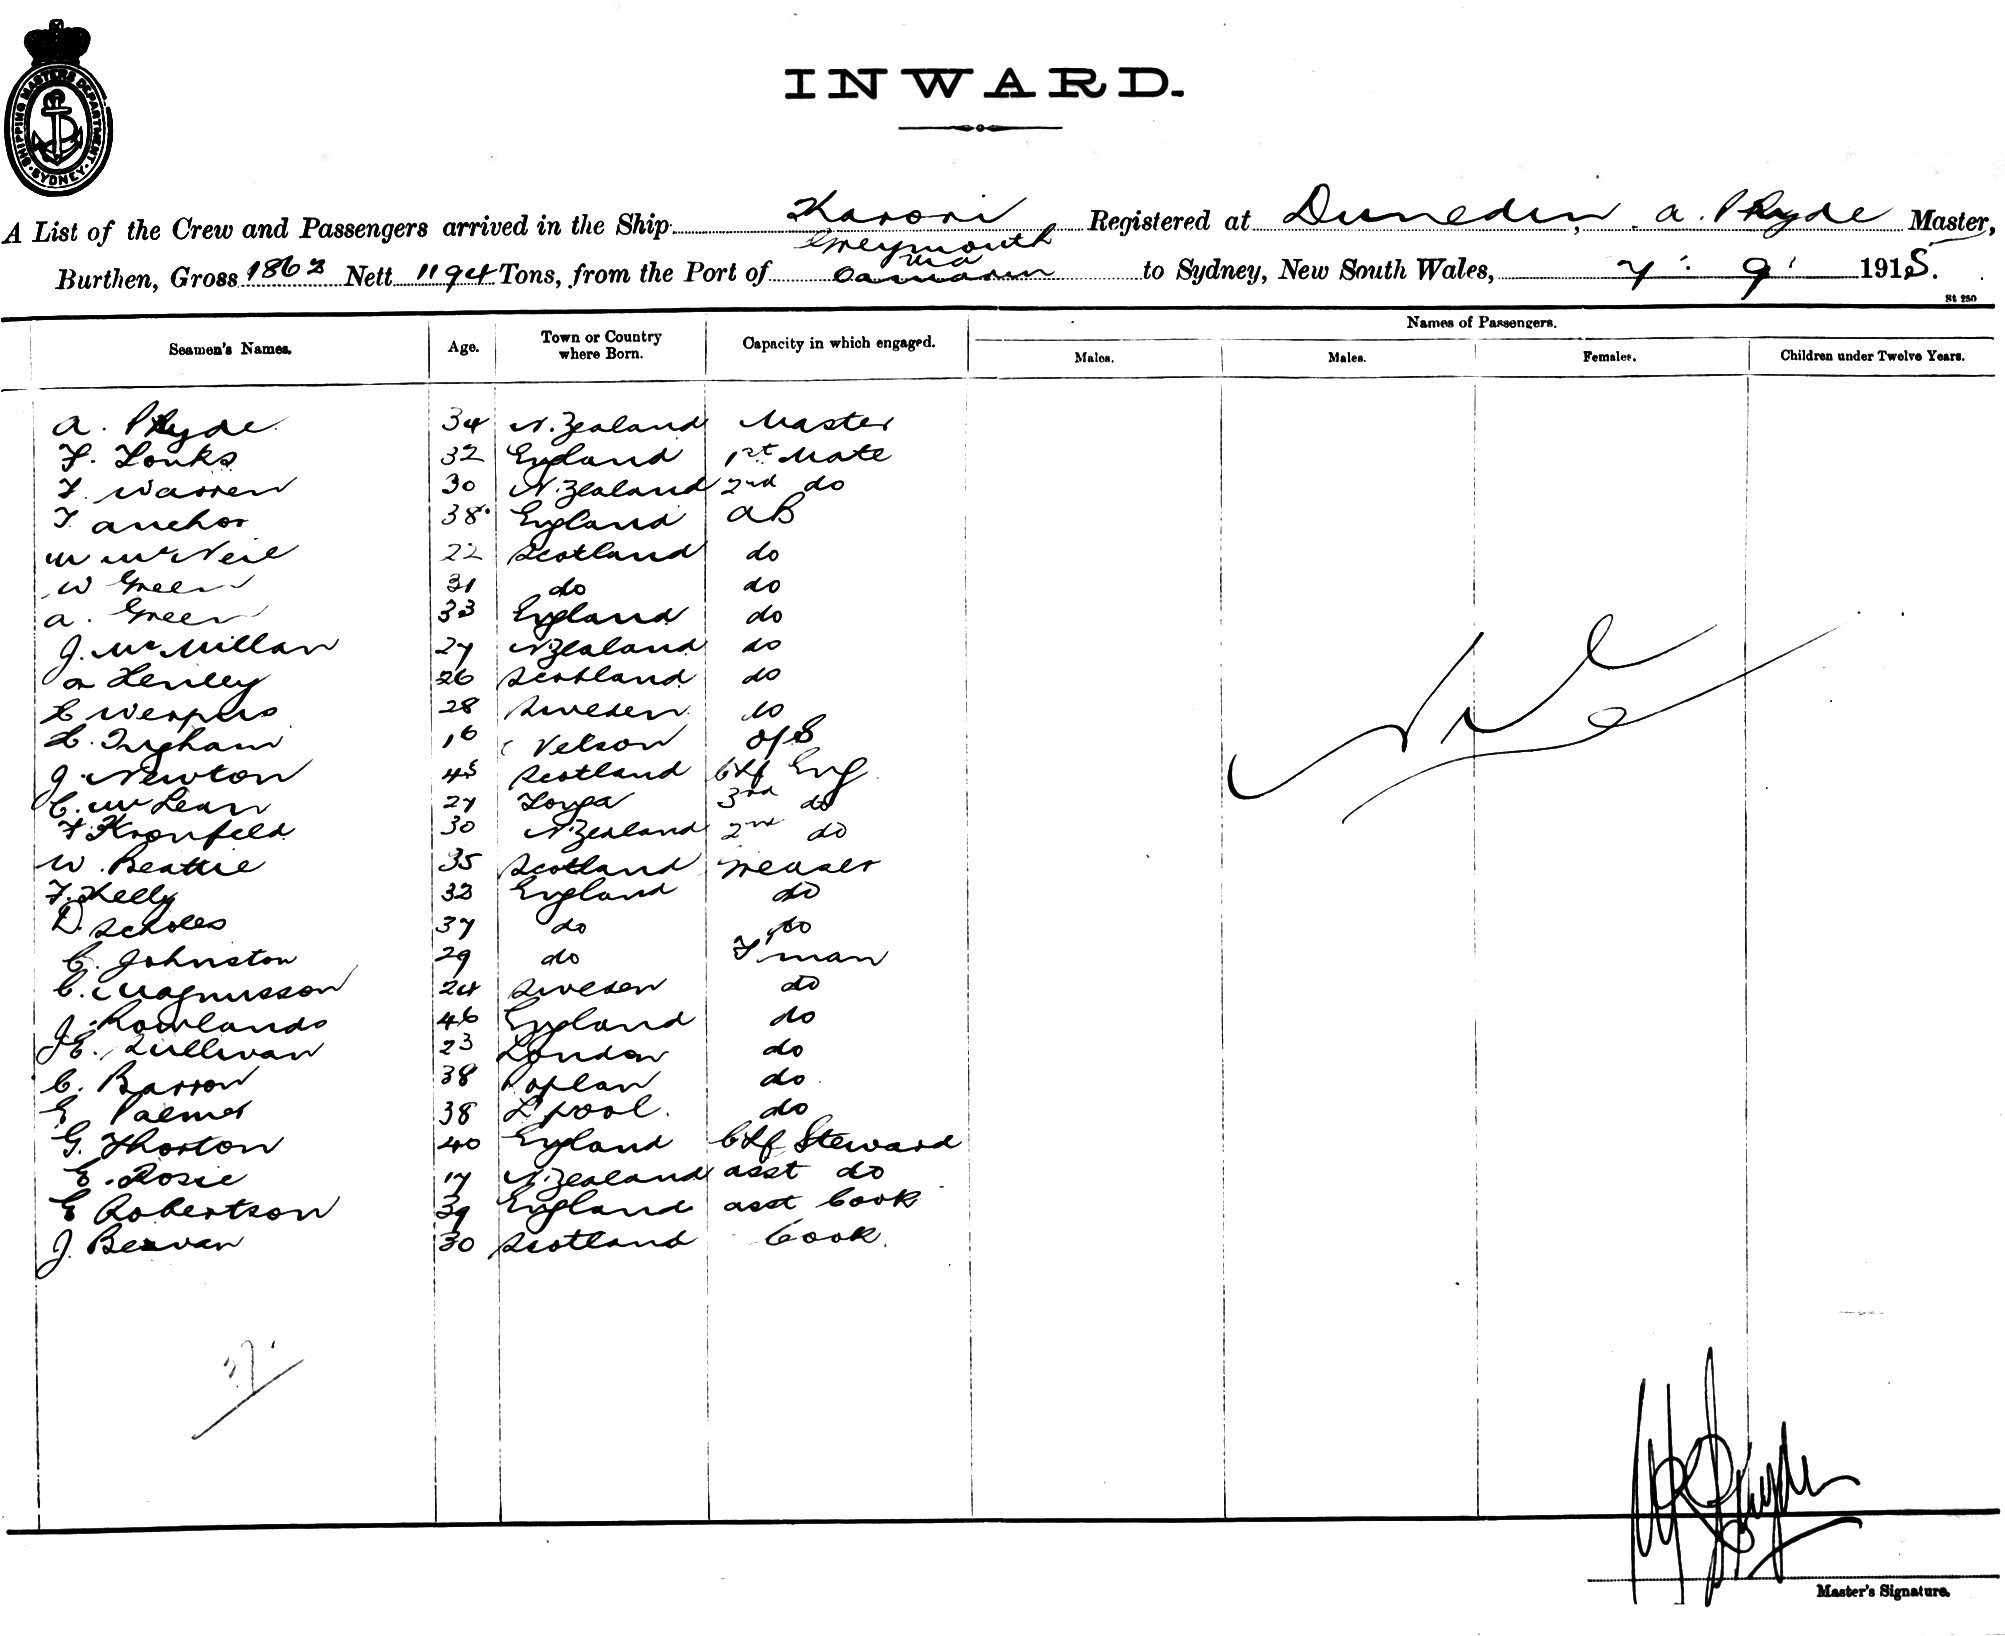 SHIPPING MASTERS DEPARTMENT. SYDNEY
INWARD.
A List of the Crew and Passengers arrived in the Ship Karori Registered at Dunedin, A. Master,
Greymouth
via
Burthen, Gross 1863 Nett 1194 Tons, from the Port of Oamaru to Sydney, New South Wales, 7. 9. 1915.
St 250
Seamen's Names. Age. Town or Country where Born. Capacity in which engaged. Names of Passengers.
Males. Males. Females. Children under Twelve Years.
A. 34 N. Zealand Master
F. Lonks 32 England 1st Mate
F. Warren 30 N. Zealand 2nd do
T. Anchor 38 England AB
W McNeil 22 Scotland do
W Green 31 do do
A. Green 33 England do
J. McMillan 27 N Zealand do
A 26 Scotland do
28 Sweden do
H. Ingham 16 Nelson O/S
J. Newton 45 Scotland Chf Eng
C. McLean 27 Tonga 3rd do
F. Kronfeld 30 N. Zealand 2nd do
W. Beattie 35 Scotland Greaser
F. Kelly 33 England do
D. Scholes 37 do do
C. Johnston 29 do F'man
C. Magnusson 24 Sweden do
J. Rowlands 46 England do
J E. Sullivan 23 London do
C. Barron 38 Poplar do
E Palmer 38 L'pool. do
G. Thorton 40 England Chf Steward
E. Rosie 17 N. Zealand asst do
E Robertson 39 England asst Cook
J. Beavan 30 Scotland Cook.
Nil
27.
Master's Signature.